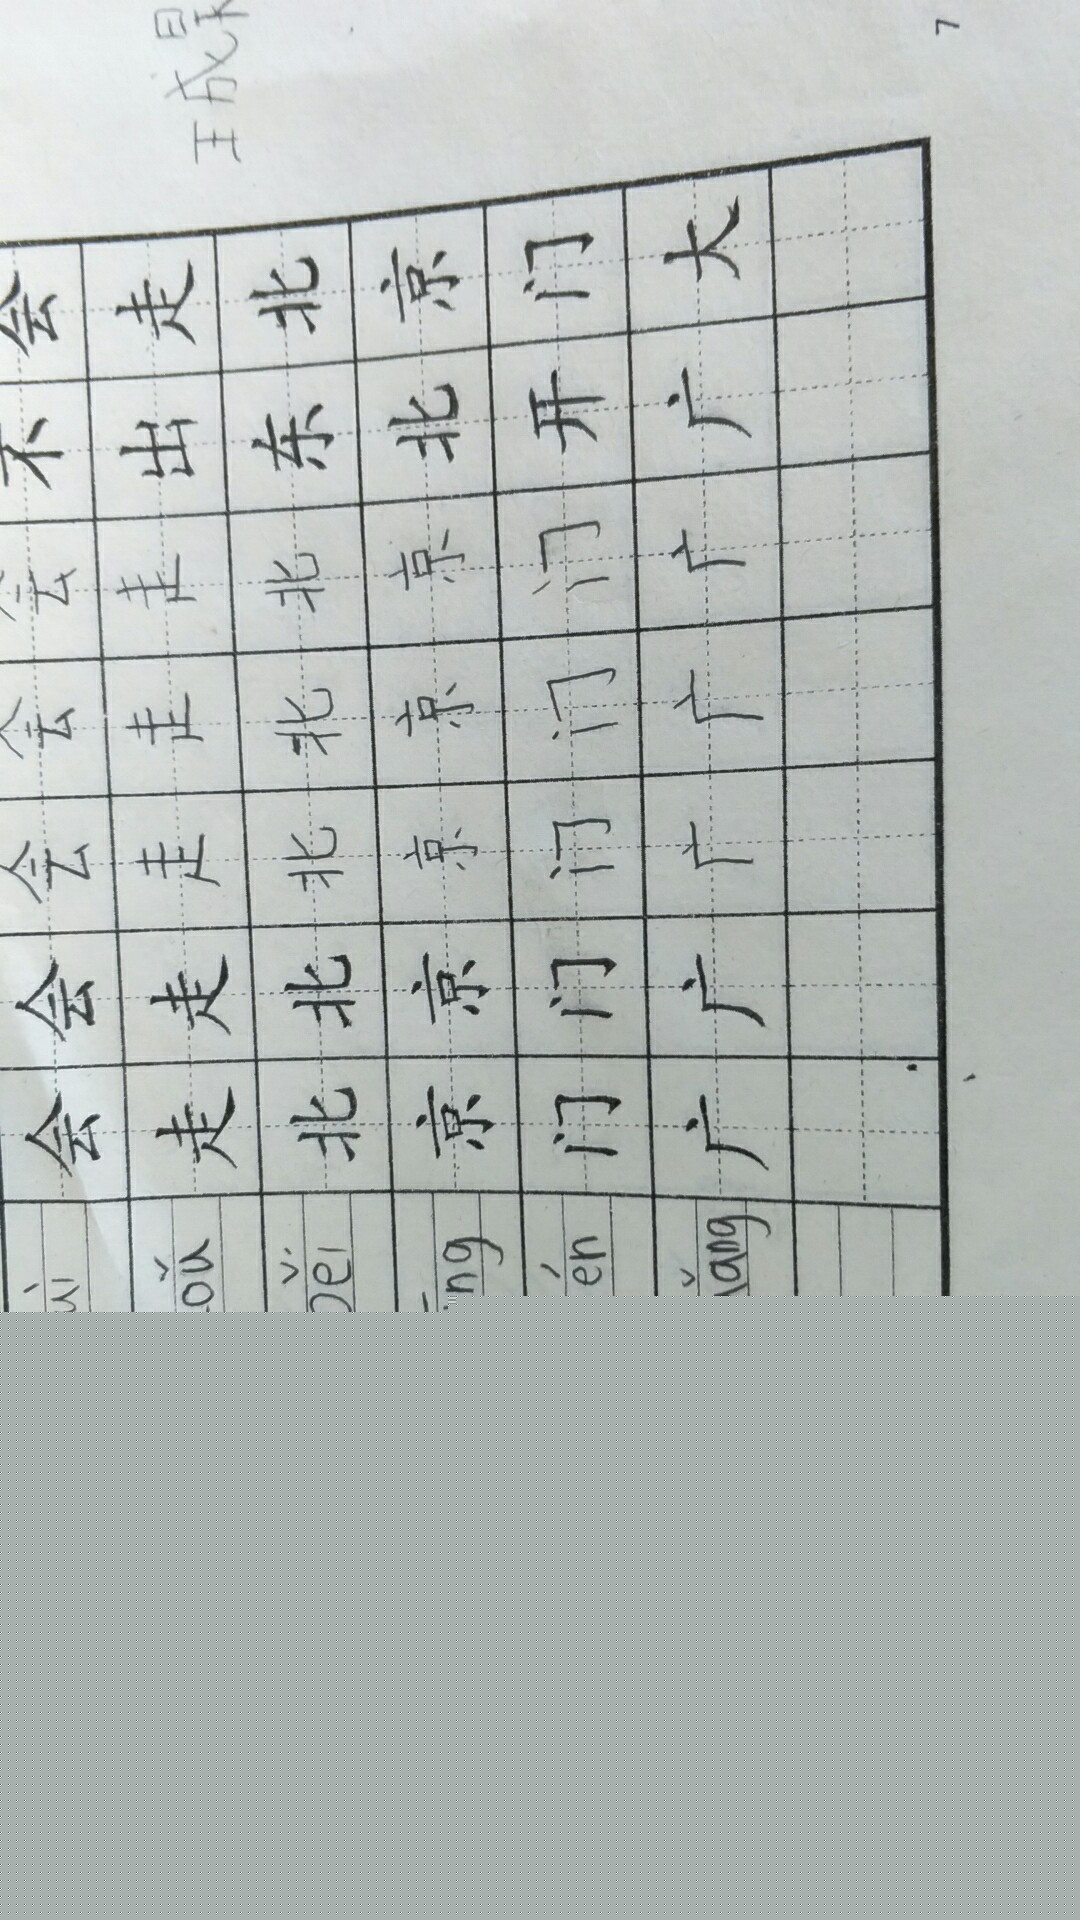 王成
uì 会 会 会 会 会 不 会
ǒu 走 走 走 走 走 出 走
běi 北 北 北 北 北 东 北
ng 京 京 京 京 京 北 京
én 门 门 门 门 门 开 门
ǎng 广 广 广 广 广 广 大
7